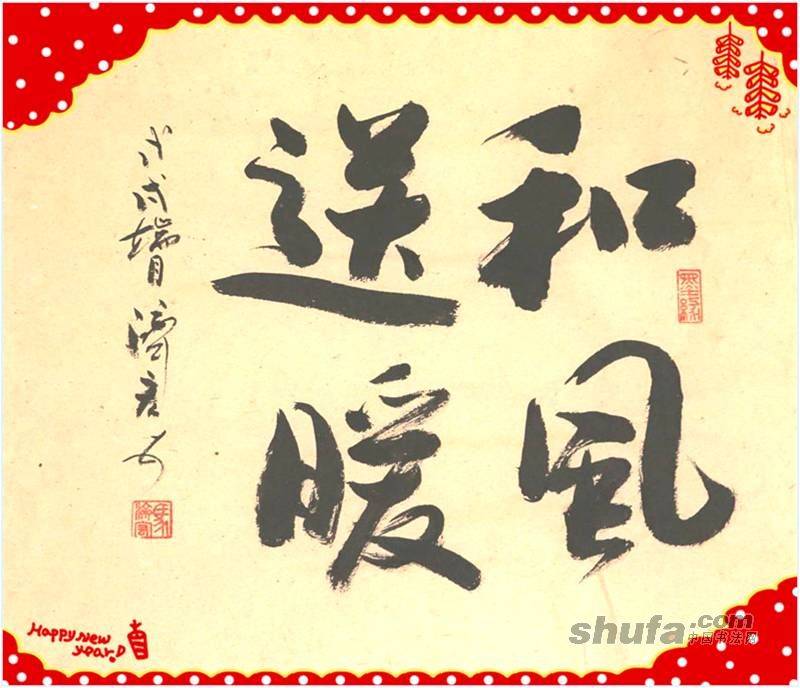 和風
送暖
戊戌端月
Happy new
year!
shufa.com
中国书法网